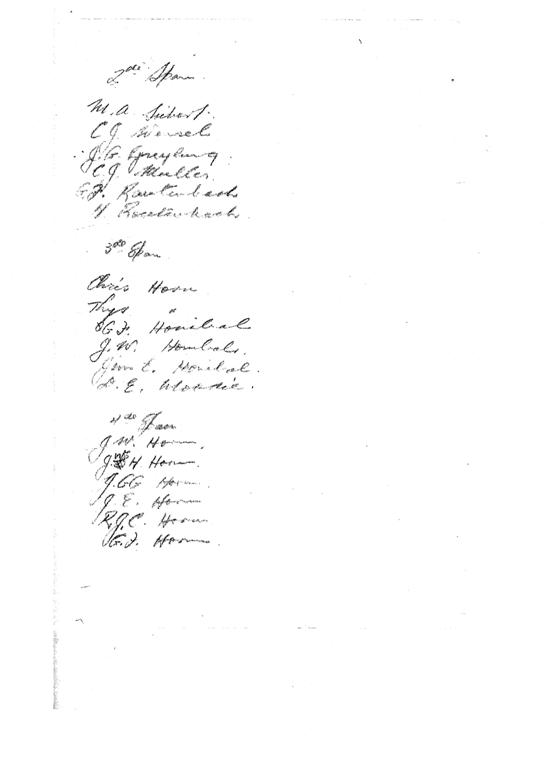 2de Span
M. A. Siebert.
C J Wessels
J. G. Greyling
C J Muller.
G. F. Rautenbach
H Rautenbach.
3de Span
Chris Horn
Thys "
G. F. Honibal
J. W. Honibal.
Jim E. Honibal.
L. E.
4de Span
J. W. Horn.
J H Horn.
J. G G Horn.
J. E. Horn
R. J. C. Horn
G. F. Horn